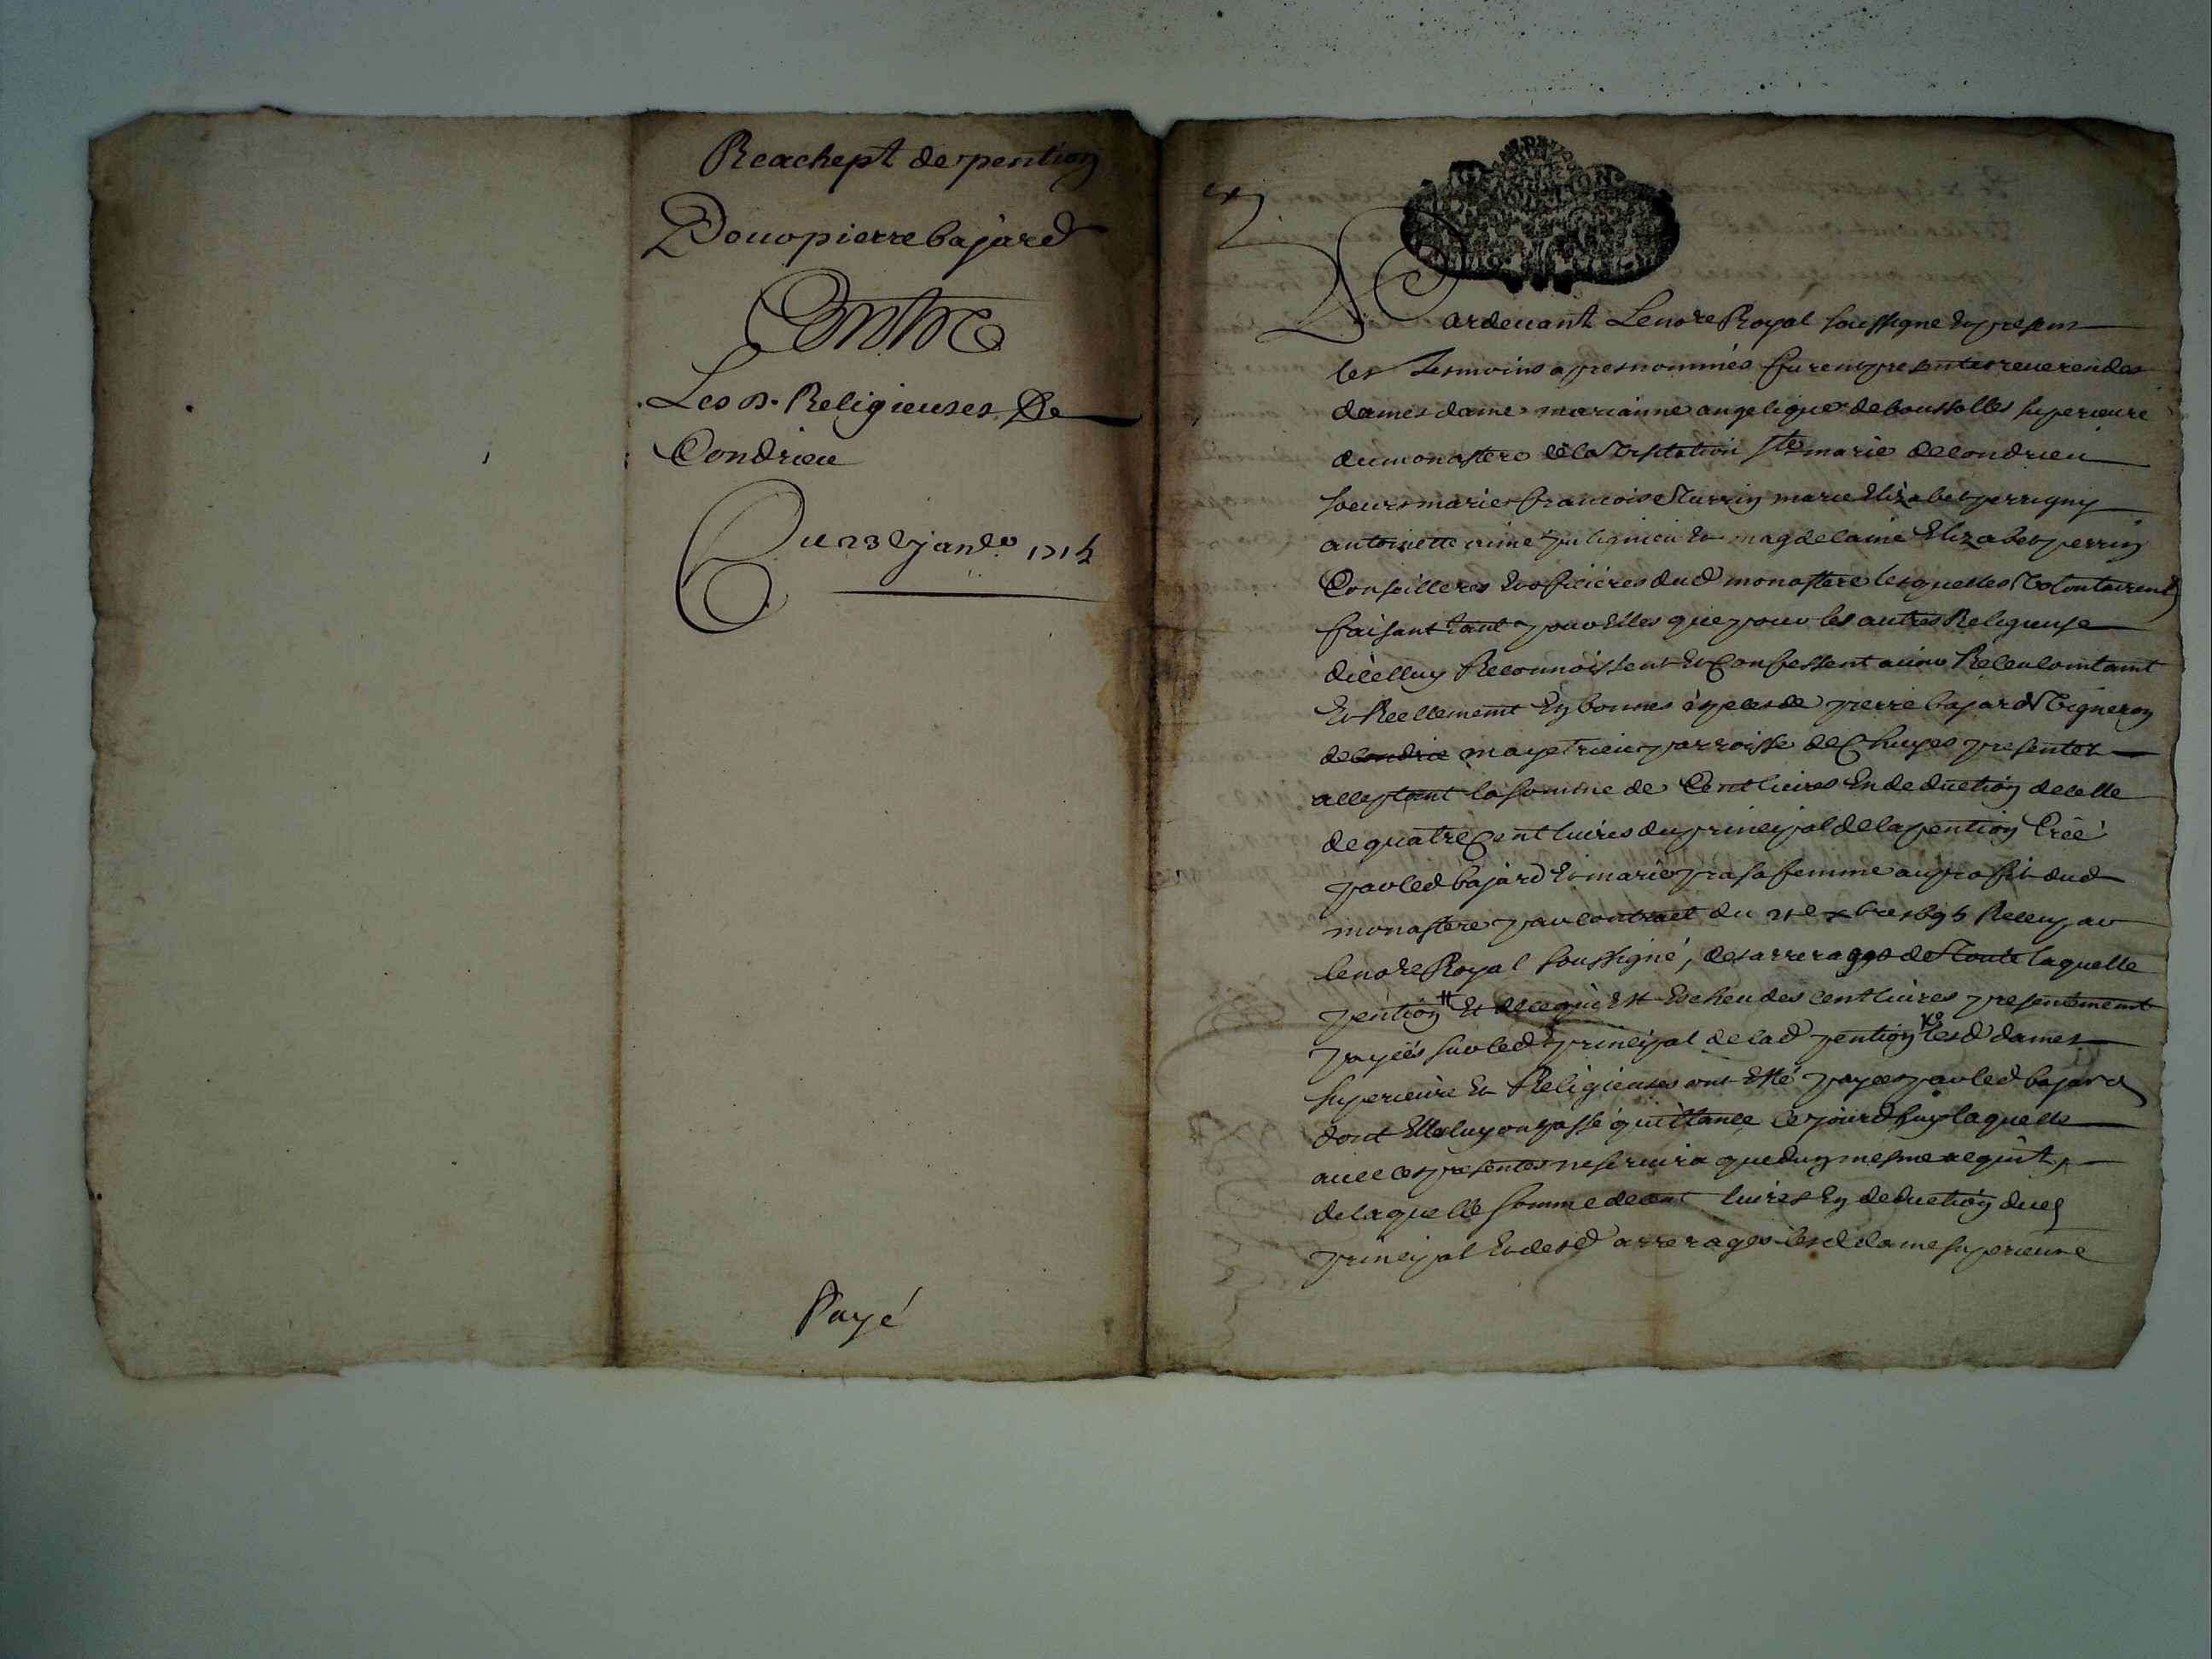 Reachept de pention
Pour pierre bajard
Contre
Les D. Religieuses De
Condrieu
Du 23e janv.er 1714
Payé
Pardevant Le no.re Royal soussigné En presens
les Tesmoins apres nommés furent presentes reverendes
dames dame marianne angelique de boussolles superieure
du monastere de la Visitation Ste marie de condrieu
soeurs marie francoise marie Elizabet perrigny
antoinette aimé et magdelaine Elizabet perrin
Conseilleres Et oficieres dud monastere lesquelles Volontairemt
faisant tant pour Elles que pour les autres Religieuse
dicelluy Reconnoissent Et Confessent avoir Receu comtant
Et Reellement En bonnes especes de pierre bajard Vigneron
de condrie parroisse de Chuyes present et
acceptant la somme de Cent livres En deduction de celle
de quatre Cent livres du principal de la pention Créé
par led bajard Et marie sa femme au profit dud
monastere par contract du Receu par
le no.re Royal soussigné, des arrerages de Toute laquelle
pention Et de ce qui Est Escheu des cent livres presentement
payées sur led principal de lad pention lesd dames
superieure Et Religieuses ont Esté payees par led bajard
dont Elles luy on passé quittance ce jourdhuy laquelle
avec ces presentes ne servira que dun mesme acquit,
de laquelle somme de cent livres En deduction dud
principal Et desd arrerages lesd dame superieure